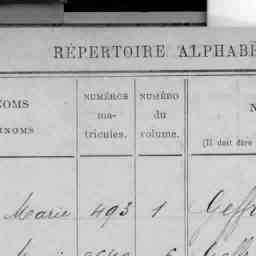 RÉPERTOIRE ALPHABÉ
NOMS
NUMÉROS
ma-
tricules.
NUMÉRO
du
volume.
N
(Il doit être
Marie 493 1 Geffr